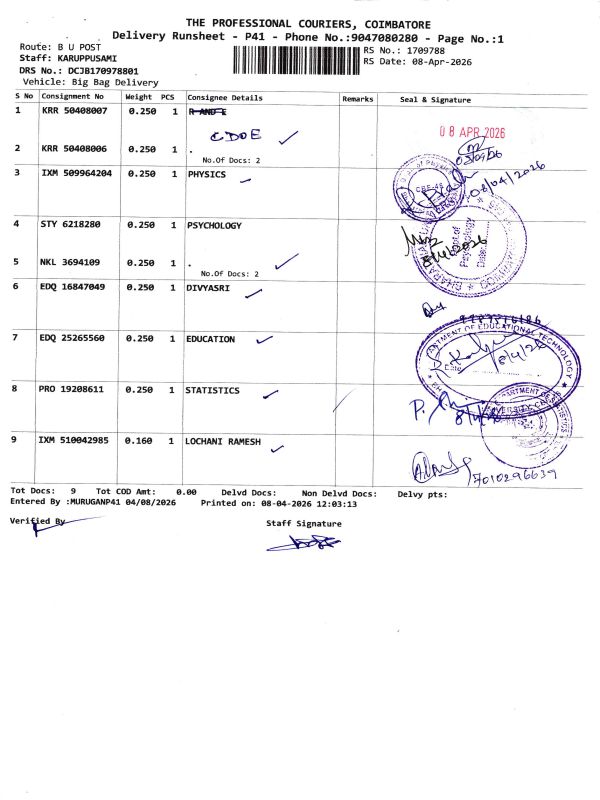 THE PROFESSIONAL COURIERS, COIMBATORE
Delivery Runsheet - P41 - Phone No.:9047080280 - Page No.:1
Route: B U POST
Staff: KARUPPUSAMI
DRS No.: DCJB170978801
Vehicle: Big Bag Delivery
RS No.: 1709788
RS Date: 08-Apr-2026
S No Consignment No Weight PCS Consignee Details Remarks Seal & Signature
1 KRR 50408007 0.250 1 R AND E
CDOE
08 APR 2026
2 KRR 50408006 0.250 1 .
No.Of Docs: 2
3 IXM 509964204 0.250 1 PHYSICS
08/04/2026
4 STY 6218280 0.250 1 PSYCHOLOGY
8/4/2026
5 NKL 3694109 0.250 1 .
No.Of Docs: 2
6 EDQ 16847049 0.250 1 DIVYASRI
7 EDQ 25265560 0.250 1 EDUCATION
8/4/26
8 PRO 19208611 0.250 1 STATISTICS
9 IXM 510042985 0.160 1 LOCHANI RAMESH
7010296639
Tot Docs: 9 Tot COD Amt: 0.00 Delvd Docs: Non Delvd Docs: Delvy pts:
Entered By :MURUGANP41 04/08/2026 Printed on: 08-04-2026 12:03:13
Verified By
Staff Signature